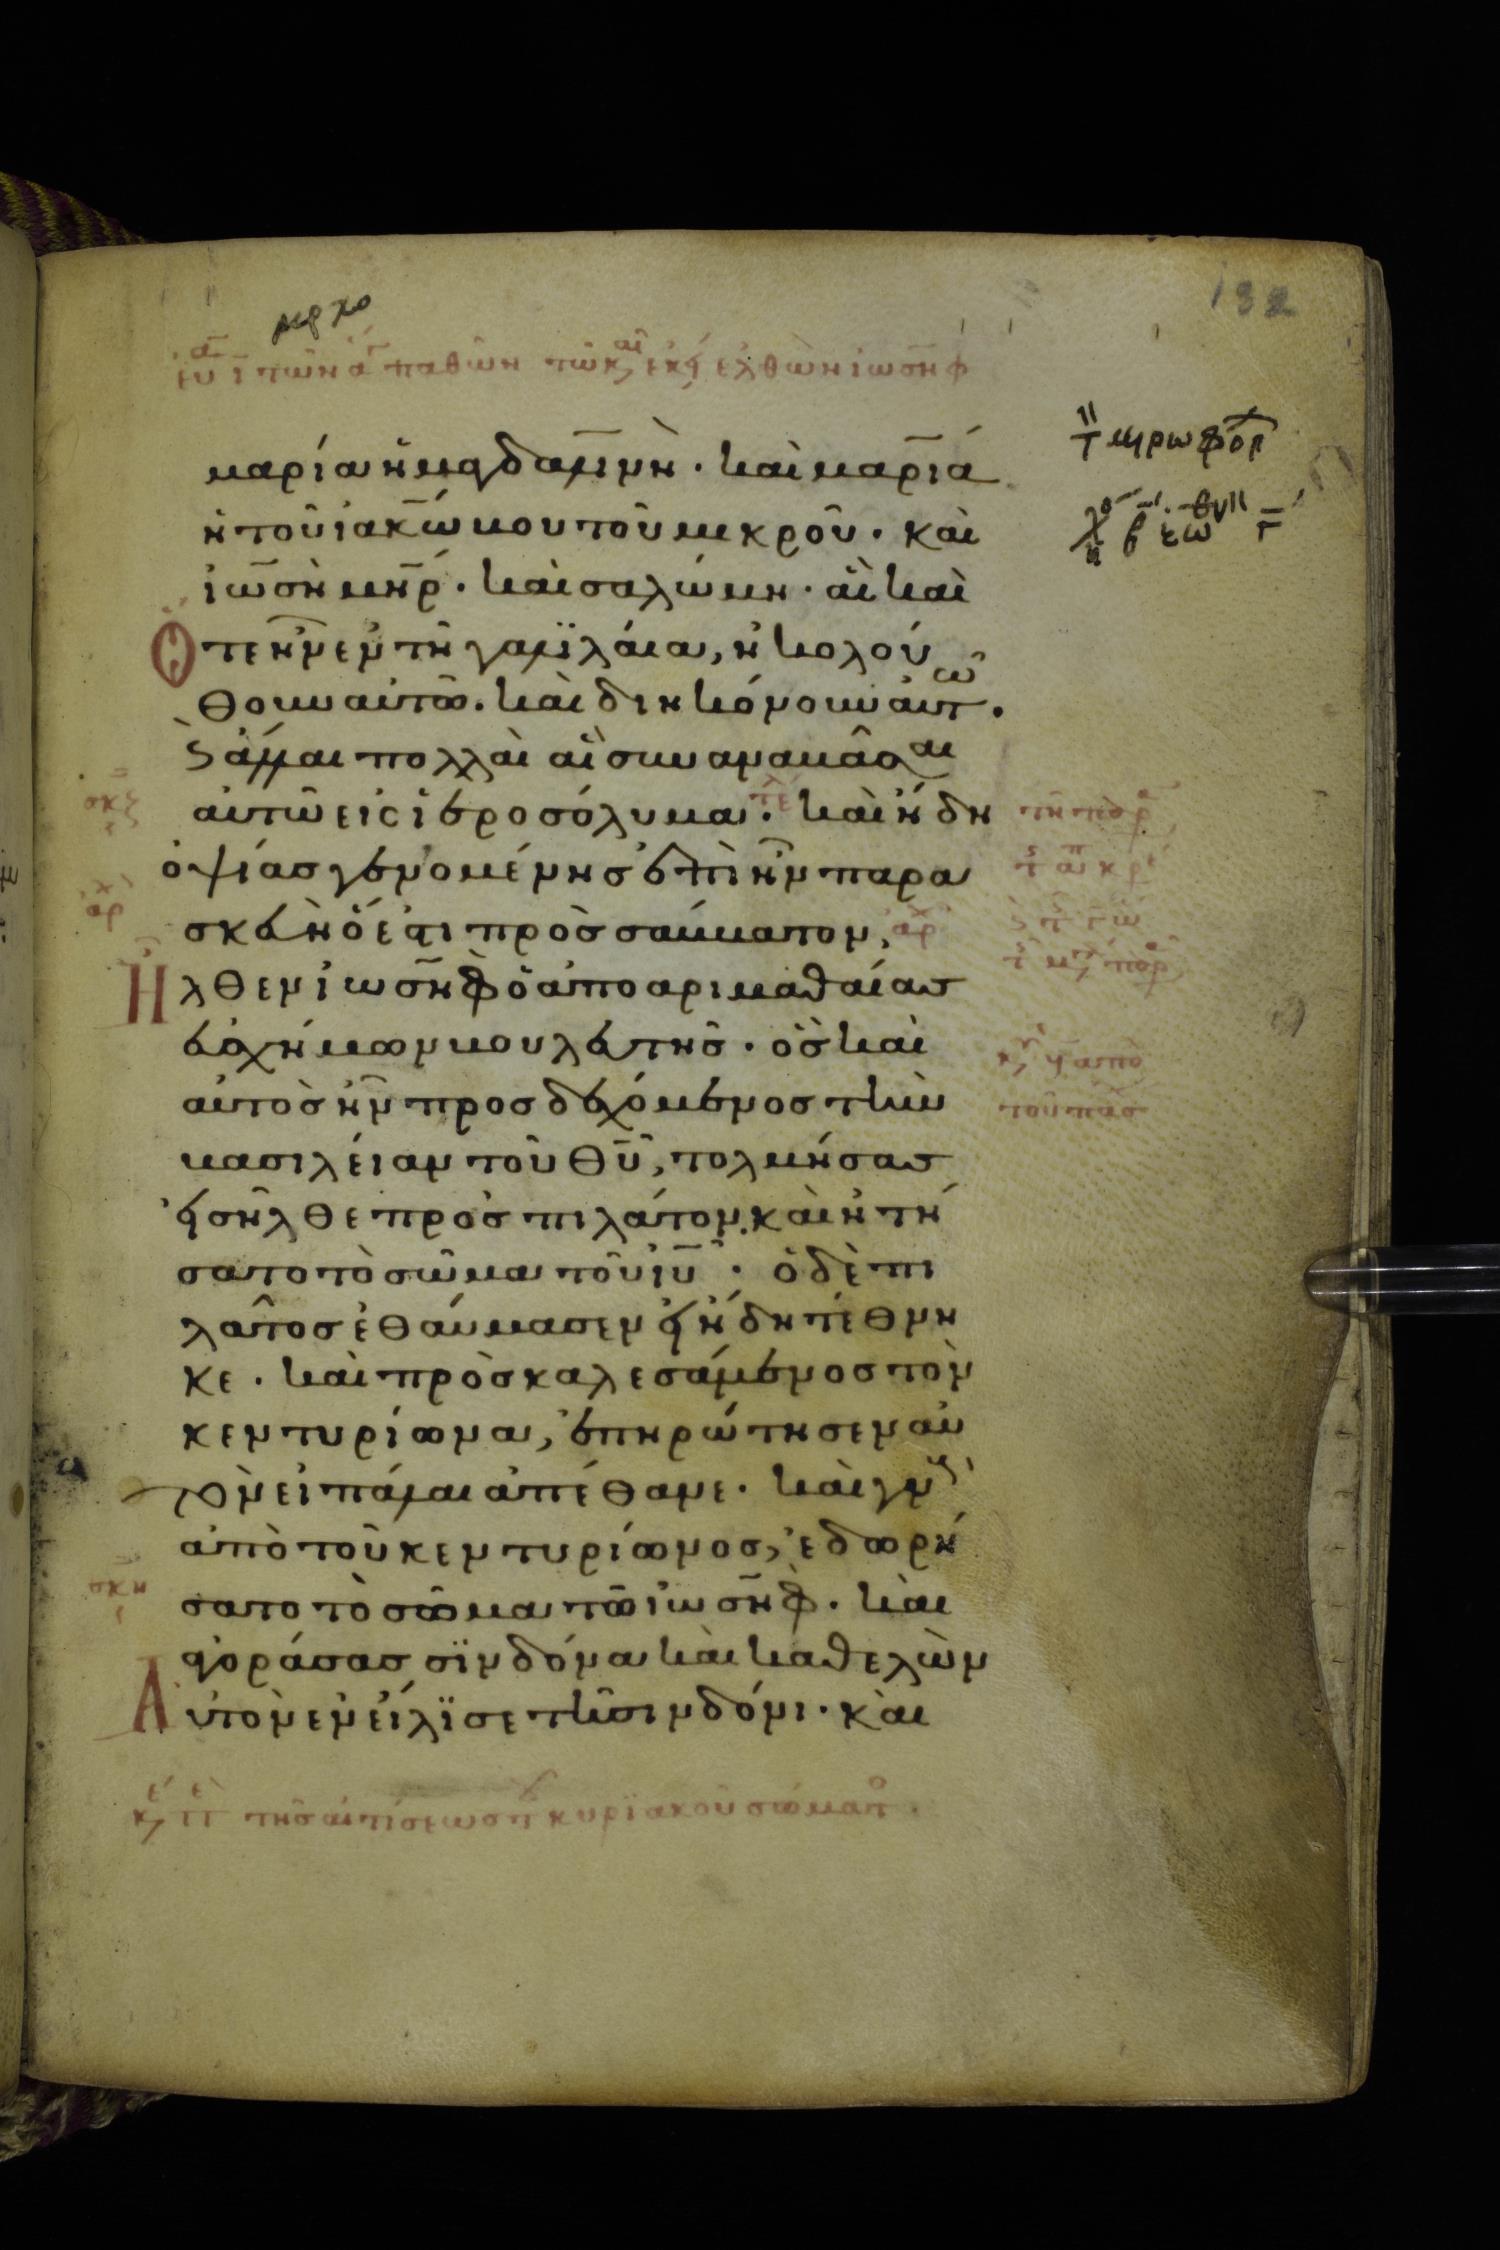 132
μαρία ἡ μαγδαλινὴ · καὶ μαρία
ἡ τοῦ ἰακώβου τοῦ μικροῦ · καὶ
ἰωσὴ μηρ · καὶ σαλώμη · αἳ καὶ
Ὅτε ἦν ἐν τῆ γαλιλαία, ἠκολού
θουν αὐτῶ · καὶ διηκόνουν αὐτῶ ·
καὶ ἄλλαι πολλαὶ αἳ συναναβᾶσαι
αὐτῶ εἰς ἱεροσόλυμα · τελ καὶ ἤδη
ὀψίας γενομένης ἐπεὶ ἦν παρα
σκευὴ ὅ ἐστι πρὸς σάββατον, ἀρχ
Ἦλθεν ἰωσὴφ ὁ ἀπο αριμαθαίας
εὐσχήμων βουλευτης · ὃς καὶ
αὐτὸς ἦν προσδεχόμενος τὴν
βασιλείαν τοῦ θυ, τολμήσας
εἰσῆλθε πρὸς πιλάτον, καὶ ἠτή
σατο τὸ σῶμα τοῦ ιυ · ὁ δὲ πι
λᾶτος ἐθαύμασεν εἰ ἤδη τέθνη
κε · καὶ πρὸσκαλεσάμενος τὸν
κεντυρίωνα, ἐπηρώτησεν αὐ
τὸν εἰ πάλαι ἀπέθανε · καὶ γν
ἀπὸ τοῦ κεντυρίωνος, ἐδωρή
σατο τὸ σῶμα τῶ ἰωσήφ · καὶ
ἀγοράσας σϊνδόνα καὶ καθελὼν
Αὐτὸν ἐνείλϊσε τῆ σινδόνι · καὶ
τῆς αἰτίσεως τ κυρϊακοῦ σώματο